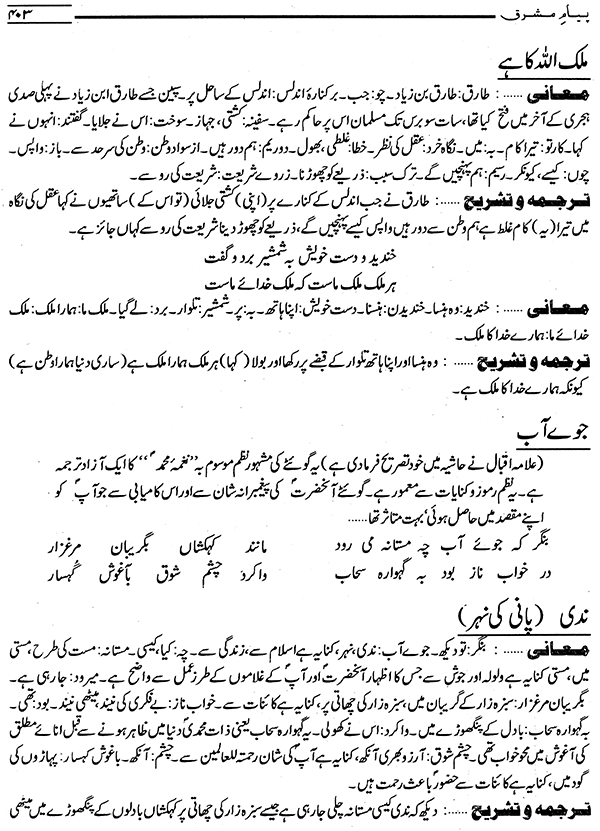 پیامِ مشرق ۴۰۳
ملک اللہ کا ہے
معانی ...... : طارق: طارق بن زیاد۔ چو: جب۔ برکنارۂ اندلس: اندلس کے ساحل پر۔ سپین جسے طارق ابن زیاد نے پہلی صدی
ہجری کے آخر میں فتح کیا تھا، سات سو برس تک مسلمان اس پر حاکم رہے۔ سفینہ: کشتی، جہاز۔ سوخت: اس نے جلایا۔ گفتند: انہوں نے
کہا۔ کارِ تو: تیرا کام۔ بہ: میں۔ نگاہ خرد: عقل کی نظر۔ خطا: غلطی، بھول۔ دوریم: ہم دور ہیں۔ از سوادِ وطن: وطن کی سرحد سے۔ باز: واپس۔
چوں: کیسے، کیونکر۔ رسیم: ہم پہنچیں گے۔ ترکِ سبب: ذریعے کو چھوڑنا۔ ز روے شریعت: شریعت کی رو سے۔
ترجمہ و تشریح ...... : طارق نے جب اندلس کے کنارے پر (اپنی) کشتی جلائی (تو اس کے) ساتھیوں نے کہا عقل کی نگاہ
میں تیرا (یہ) کام غلط ہے ہم وطن سے دور ہیں واپس کیسے پہنچیں گے، ذریعے کو چھوڑ دینا شریعت کی رو سے کہاں جائز ہے۔
خندید و دست خویش بہ شمشیر برد و گفت
ہر ملک ملک ماست کہ ملک خدائے ماست
معانی ...... : خندید: وہ ہنسا۔ خندیدن: ہنسنا۔ دست خویش: اپنا ہاتھ۔ بہ: پر۔ شمشیر: تلوار۔ برد: لے گیا۔ ملک ما: ہمارا ملک: ملک
خدائے ما: ہمارے خدا کا ملک۔
ترجمہ و تشریح ...... : وہ ہنسا اور اپنا ہاتھ تلوار کے قبضے پر رکھا اور بولا (کہا) ہر ملک ہمارا ملک ہے (ساری دنیا ہمارا وطن ہے)
کیونکہ ہمارے خدا کا ملک ہے۔
جوے آب
(علامہ اقبال نے حاشیہ میں خود تصریح فرما دی ہے) یہ گوئٹے کی مشہور نظم موسوم بہ ”نغمۂ محمدؐ“ کا ایک آزاد ترجمہ
ہے۔ یہ نظم رموز و کنایات سے معمور ہے۔ گوئٹے آنحضرتؐ کی پیغمبرانہ شان سے اور اس کامیابی سے جو آپؐ کو
اپنے مقصد میں حاصل ہوئی بہت متاثر تھا......
بنگر کہ جوئے آب چہ مستانہ می رود مانند کہکشاں بگریبان مرغزار
در خواب ناز بود بہ گہوارہ سحاب واکرد چشم شوق بآغوش کہسار
ندی (پانی کی نہر)
معانی ...... : بنگر: تو دیکھ۔ جوے آب: ندی، نہر، کنایہ ہے اسلام سے، زندگی سے۔ چہ: کیا، کیسی۔ مستانہ: مست کی طرح، مستی
میں، مستی کنایہ ہے ولولہ اور جوش سے جس کا اظہار آنحضرتؐ اور آپؐ کے غلاموں کے طرز عمل سے واضح ہے۔ میرود: جا رہی ہے۔
بگریبان مرغزار: سبزہ زار کے گریبان میں، سبزہ زار کی چھاتی پر، کنایہ ہے کائنات سے۔ خواب ناز: بے فکری کی نیند میٹھی نیند۔ بود: تھی۔
بہ گہوارہ سحاب: بادل کے پنگھوڑے میں۔ واکرد: اس نے کھولی۔ بہ گہوارہ سحاب یعنی ذات محمدیؐ دنیا میں ظاہر ہونے سے قبل انائے مطلق
کی آغوش میں محو خواب تھی۔ چشم شوق: آرزو بھری آنکھ، کنایہ ہے آپؐ کی شان رحمۃ للعالمین سے۔ چشم: آنکھ۔ باغوش کہسار: پہاڑوں کی
گود میں، کنایہ ہے کائنات سے حضورؐ باعث رحمت ہیں۔
ترجمہ و تشریح ...... : دیکھ کہ ندی کیسی مستانہ چلی جا رہی ہے جیسے سبزہ زار کی چھاتی پر کہکشاں بادلوں کے پنگھوڑے میں میٹھی